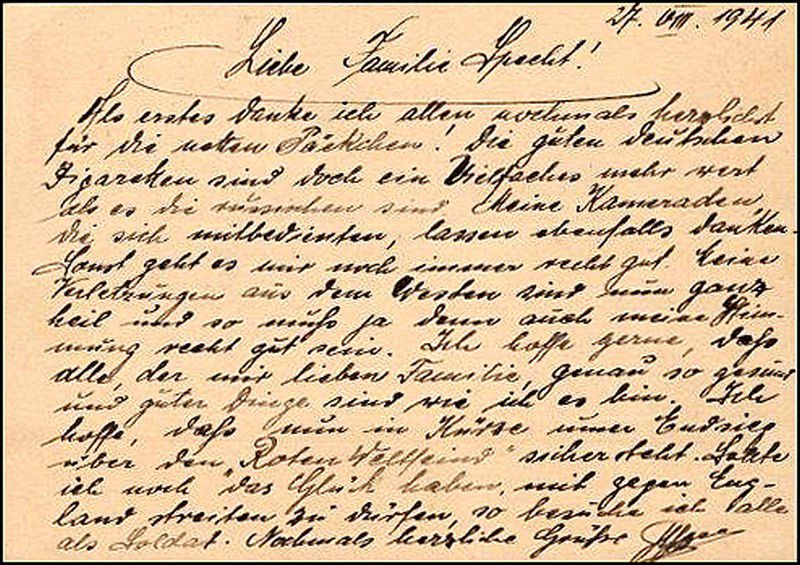 27. VIII. 1941
Liebe Familie Specht!
Als erstes danke ich allen nochmals herzlichst
für die netten Päckchen! Die guten deutschen
Zigaretten sind doch ein Vielfaches mehr wert
als es die russischen sind. Meine Kameraden,
die sich mitbedienten, lassen ebenfalls danken.
Sonst geht es mir noch immer recht gut. Meine
Verletzungen aus dem Westen sind nun ganz
heil und so muß ja denn auch meine Stim-
mung recht gut sein. Ich hoffe gerne, daß
alle, der mir lieben Familie, genau so gesund
und guter Dinge sind wie ich es bin. Ich
hoffe, daß nun in Kürze unser Endsieg
über den "Roten Weltfeind" sichersteht. Sollte
ich noch das Glück haben, mit gegen Eng-
land streiten zu dürfen, so besuche ich alle
als Soldat. Nochmals herzliche Grüße